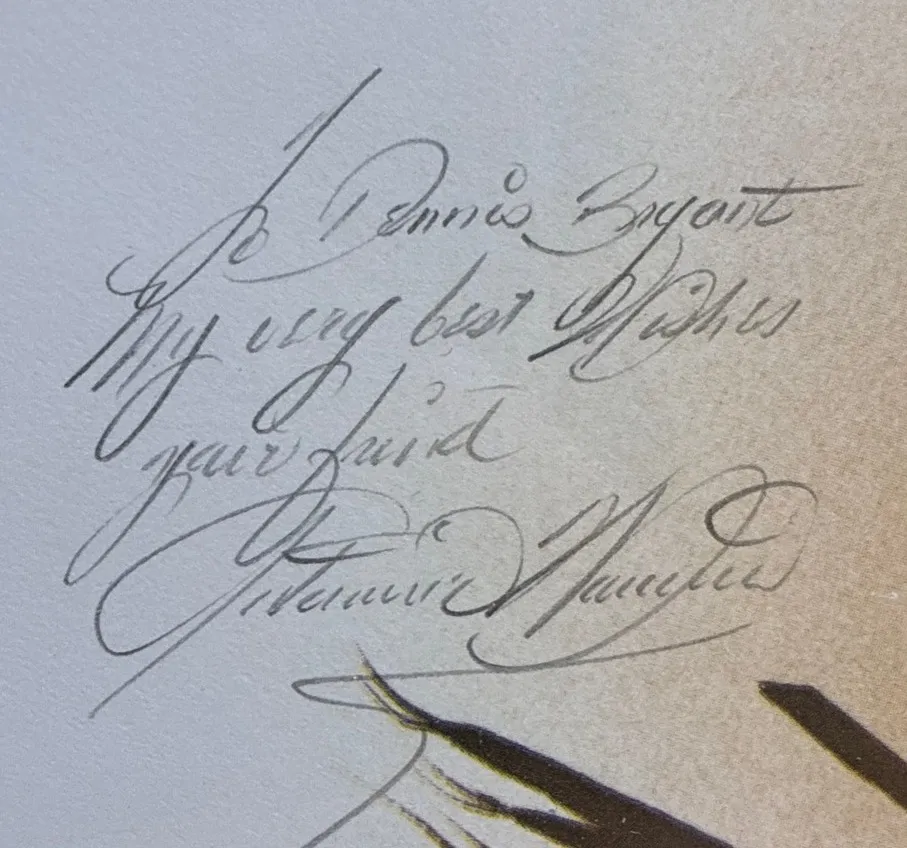 To Dennis Bryant
My very best Wishes
your friend